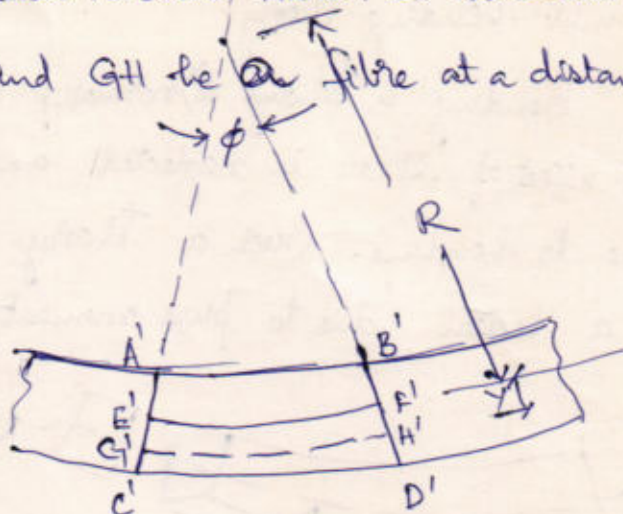 and GH be a fibre at a distan
φ
R
A'
B'
E'
F'
G'
H'
y
C'
D'